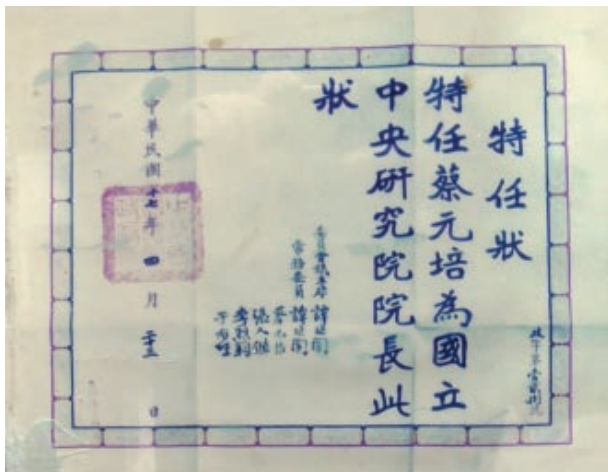 特任狀
特任蔡元培為國立
中央研究院院長此
狀
委員會議主席 譚延闓
常務委員 譚延闓
蔡元培
張人傑
李烈鈞
于右任
中華民國十七年四月二十三日